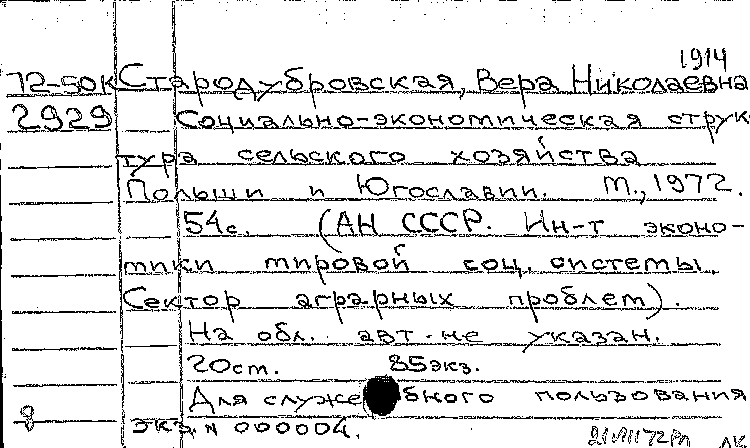 1914
72-50к Стародубровская, Вера Николаевна
2929 Социально-экономическая струк
тура сельского хозяйства
Польши и Югославии. М., 1972.
54с. (АН СССР. Ин-т эконо-
мики мировой соц. системы.
Сектор аграрных проблем).
На обл. авт. не указан.
20см. 85экз.
Для служебного пользования
8 экз. N 000004.